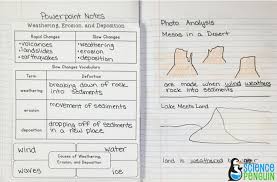 Powerpoint Notes
Weathering, Erosion, and Deposition
Rapid Changes
Slow Changes
•volcanoes
•landslides
•earthquakes
•weathering
•erosion
•deposition
Slow Changes Vocabulary
Term
Definition
weathering
breaking down of rock
into sediments
erosion
movement of sediments
deposition
dropping off of sediments
in a new place
wind
water
Causes of Weathering,
Erosion, and Deposition
waves
ice
Photo Analysis
Mesas in a Desert
are made when wind weathers
rock into sediments
Lake Meets Land
land is weathered
Science
Penguin